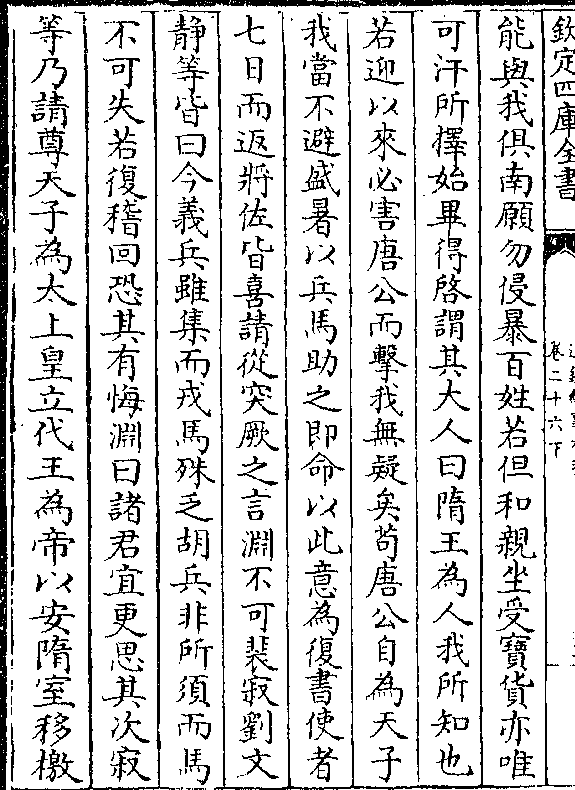 欽定四庫全書
卷二十六下
能與我俱南願勿侵暴百姓若但和親坐受寶貨亦唯
可汗所擇始畢得啓謂其大人曰隋王為人我所知也
若迎以來必害唐公而擊我無疑矣茍唐公自為天子
我當不避盛暑以兵馬助之即命以此意為復書使者
七日而返將佐皆喜請從突厥之言淵不可裴寂劉文
静等皆曰今義兵雖集而戎馬殊乏胡兵非所須而馬
不可失若復稽回恐其有悔淵曰諸君宜更思其次寂
等乃請尊天子為太上皇立代王為帝以安隋室移檄